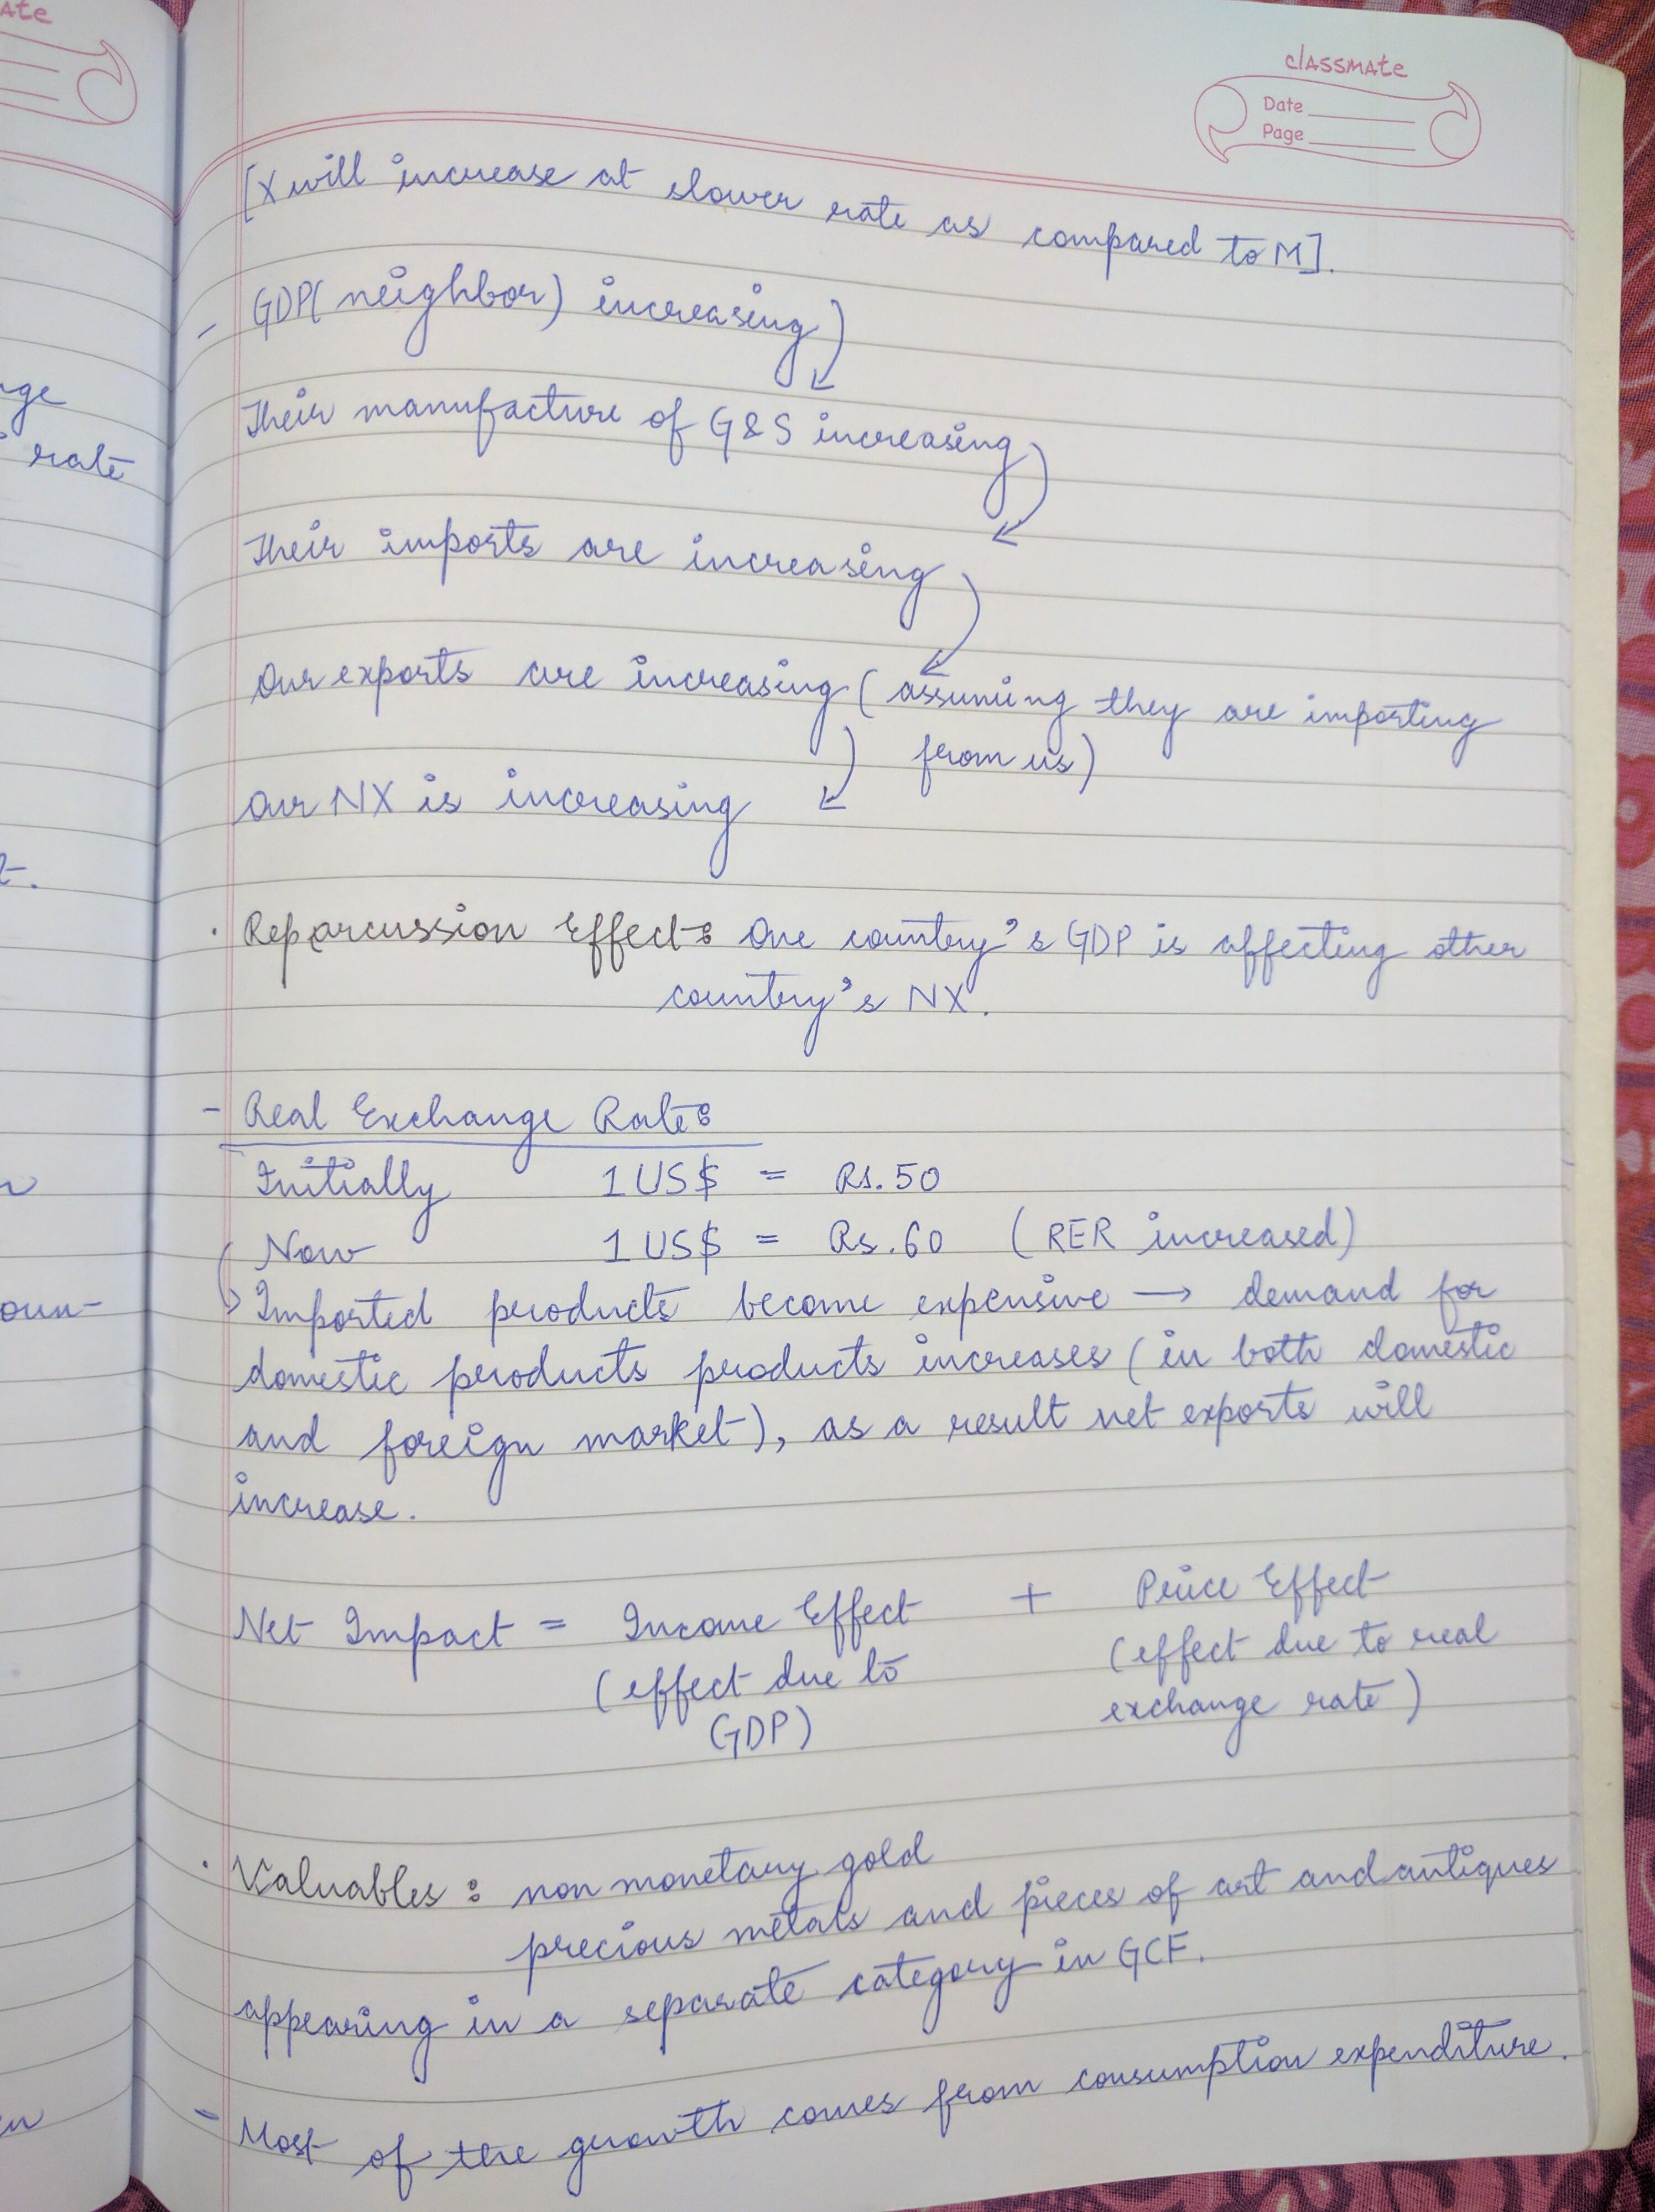 ate
classmate
Date
Page
[X will increase at slower rate as compared to M].
- GDP(neighbor) increasing
Their manufacture of G&S increasing
rate
Their imports are increasing
Our exports are increasing (assuming they are importing
from us)
Our NX is increasing
t.
· Reparcussion Effect: One country's GDP is affecting other
country's NX.
- Real Exchange Rate:
Initially 1 US$ = Rs. 50
Now 1 US$ = Rs. 60 (RER increased)
oun-
Imported products become expensive → demand for
domestic products products increases (in both domestic
and foreign market), as a result net exports will
increase.
Net Impact = Income Effect + Price Effect
(effect due to (effect due to real
GDP) exchange rate)
· Valuables : non monetary gold
precious metals and pieces of art and antiques
appearing in a separate category in GCF.
- Most of the growth comes from consumption expenditure.